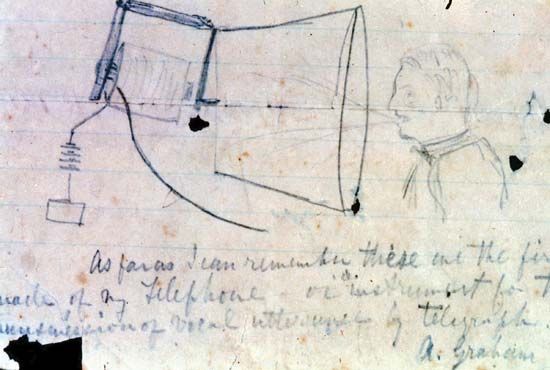 As far as I can remember these are the fir
made of my Telephone or "instrument for T
ansmission of vocal utterances by telegraph.
A. Graham